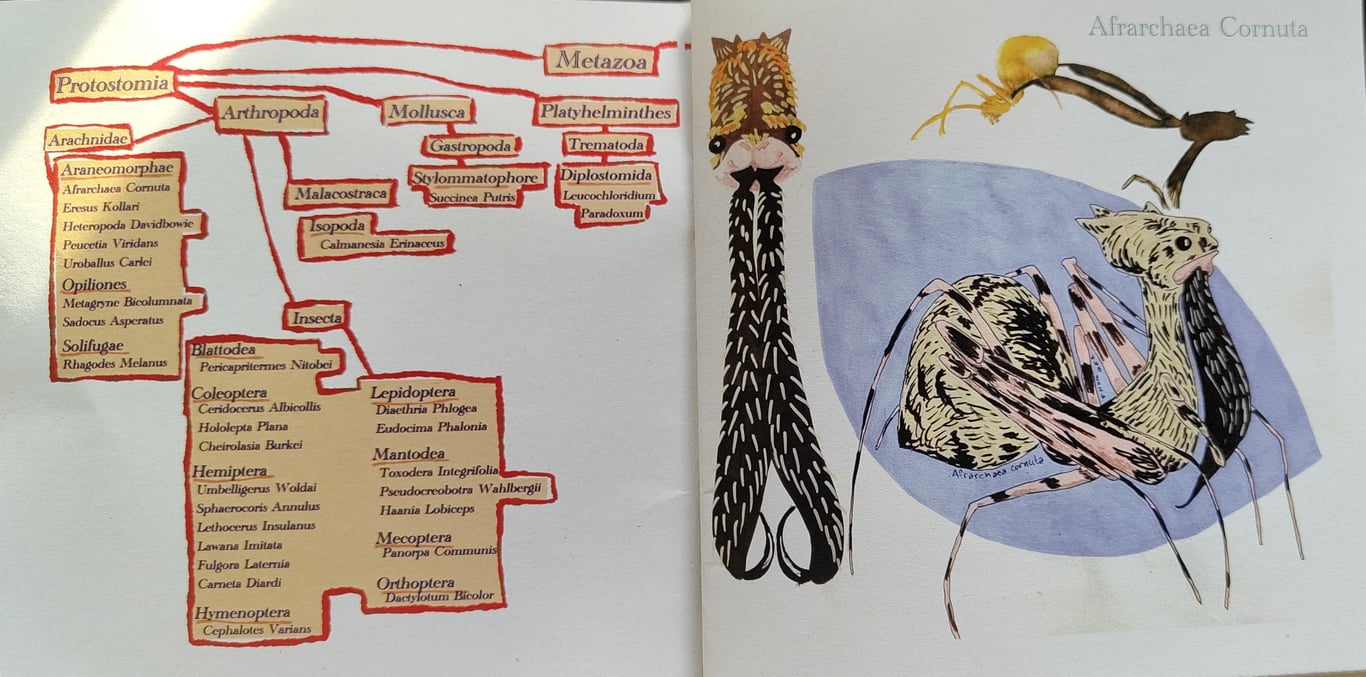 Metazoa
Protostomia
Arthropoda
Mollusca
Platyhelminthes
Arachnidae
Araneomorphae
Afrarchaea Cornuta
Eresus Kollari
Heteropoda Davidbowie
Peucetia Viridans
Uroballus Carlei
Opiliones
Metagryne Bicolumnata
Sadocus Asperatus
Solifugae
Rhagodes Melanus
Malacostraca
Isopoda
Calmanesia Erinaceus
Gastropoda
Stylommatophore
Succinea Putris
Trematoda
Diplostomida
Leucochloridium
Paradoxum
Insecta
Blattodea
Pericapritermes Nitobei
Coleoptera
Ceridocerus Albicollis
Hololepta Plana
Cheirolasia Burkei
Hemiptera
Umbelligerus Woldai
Sphaerocoris Annulus
Lethocerus Insulanus
Lawana Imitata
Fulgora Laternia
Carneta Diardi
Hymenoptera
Cephalotes Varians
Lepidoptera
Diaethria Phlogea
Eudocima Phalonia
Mantodea
Toxodera Integrifolia
Pseudocreobotra Wahlbergii
Haania Lobiceps
Mecoptera
Panorpa Communis
Orthoptera
Dactylotum Bicolor
Afrarchaea Cornuta
Afrarchaea cornuta